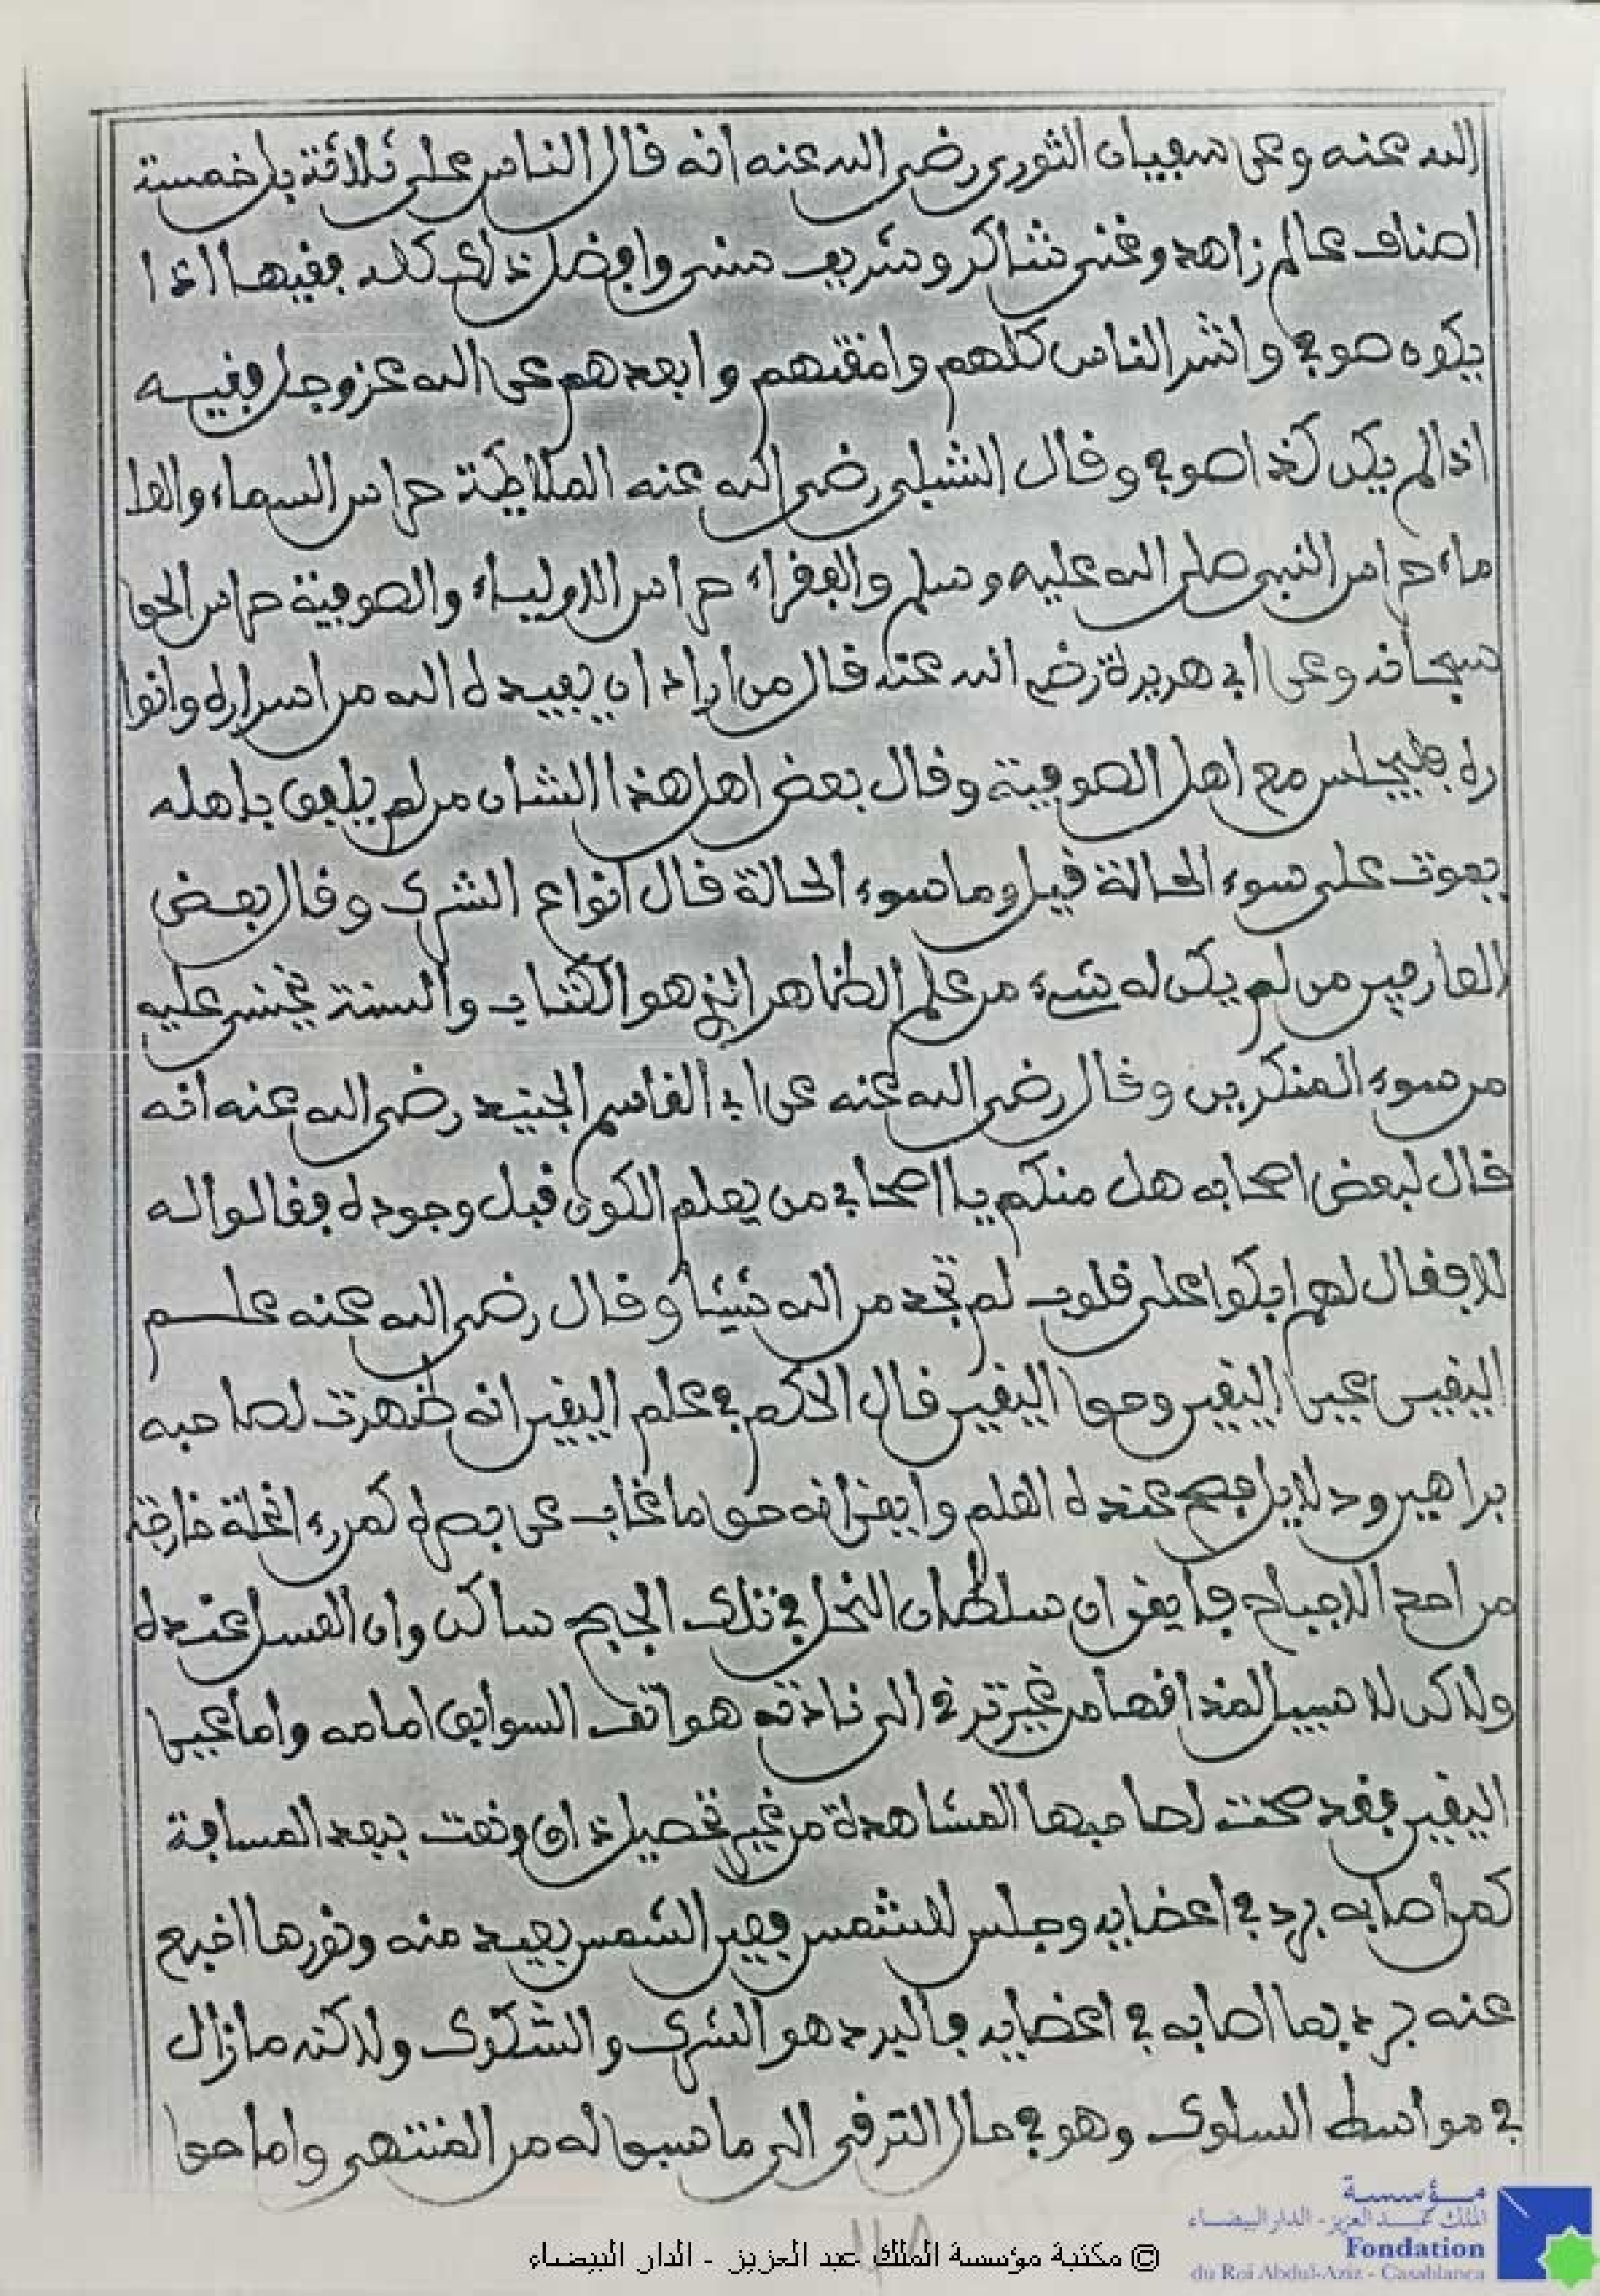 الله عنه وعن سفيان الثوري رضي الله عنه انه قال الناس على ثلاثة بل خمسة
اصناف عالم زاهد وغني شاكر وشريف سني وافضل ذلك كله فقيها اذا
يكون صوفي واشر الناس كلهم وامقتهم وابعدهم عن الله عز وجل فقيه
اذا لم يكن كذا صوفي وقال الشبلي رضي الله عنه الملائكة حراس السماء والعل
ماء حراس النبي صلى الله عليه وسلم والفقراء حراس الاولياء والصوفية حراس الحق
سبحانه وعن ابي هريرة رضي الله عنه قال من اراد ان يفيده الله من اسراره وانوا
ره فليجلس مع اهل الصوفية وقال بعض اهل هذا الشان من لم يلحق باهله
يموت على سوء الحالة قيل وما سوء الحالة قال انواع الشرك وقال بعض
العارفين من لم يكن له شيء من علم الظاهر الذي هو الكتاب والسنة يخشى عليه
من سوء المنكرين وقال رضي الله عنه عن ابي القاسم الجنيد رضي الله عنه انه
قال لبعض اصحابه هل منكم يا اصحابي من يعلم الكون قبل وجوده فقالوا له
لا فقال لهم ابكوا على قلوب لم تجد من الله شيئا وقال رضي الله عنه علم
اليقين عين اليقين وحق اليقين قال الاكم في علم اليقين انه ظهرت لصاحبه
براهين ودلايل فصح عنده العلم وايقن انه حق ما غاب عن بصره كمن رءا نحلة خارجة
من احد الاجباح فايقن ان سلطان النحل في تلك الجبح ساكن وان العسل عنده
ولاكن لا سبيل لمذاقها من غير ترق الى نادته هواتف السوابق امامه واما عين
اليقين فقد صحت لصاحبها المشاهدة من غير تحصيل ذان ونعت ببعد المسافة
كمن اصابه برد في اعضايه وجلس للشمس فعين الشمس بعيد منه ونورها اندفع
عنه برد بما اصابه في اعضايه فالبرد هو الشرك والشكوك ولاكنه مازال
في مواسط السلوك وهو في حال الترقي الى ما سبق له من المنتهى واما حق
© مكتبة مؤسسة الملك عبد العزيز - الدار البيضاء
مؤسسة
الملك عبد العزيز - الدار البيضاء
Fondation
du Roi Abdul-Aziz - Casablanca